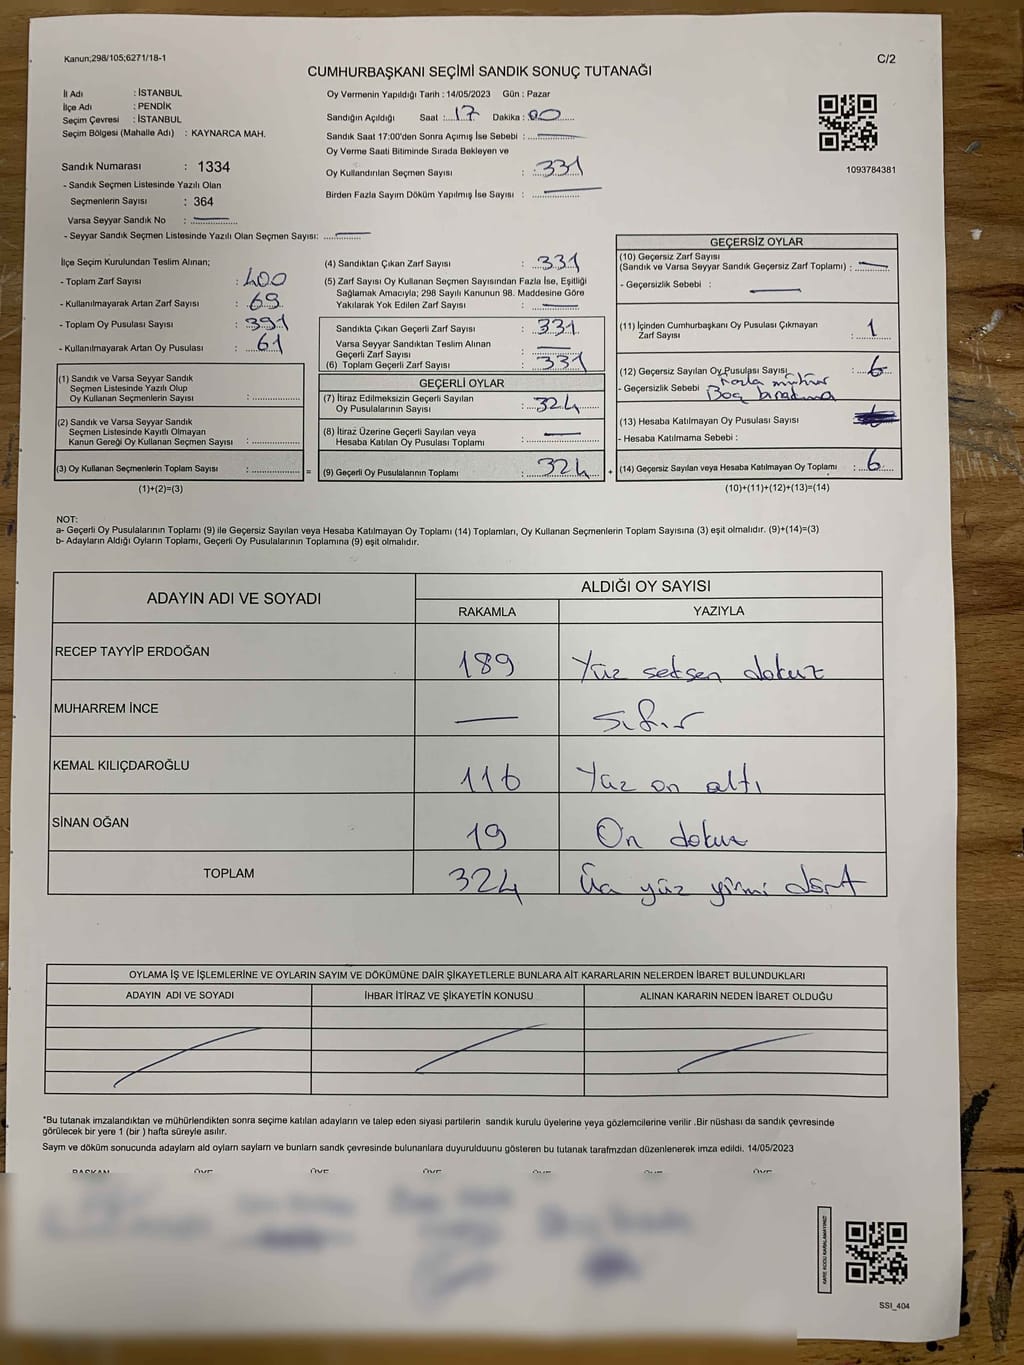 Kanun;298/105;6271/18-1
C/2
CUMHURBAŞKANI SEÇİMİ SANDIK SONUÇ TUTANAĞI
İl Adı : İSTANBUL
İlçe Adı : PENDİK
Seçim Çevresi : İSTANBUL
Seçim Bölgesi (Mahalle Adı) : KAYNARCA MAH.
Oy Vermenin Yapıldığı Tarih : 14/05/2023 Gün : Pazar
Sandığın Açıldığı Saat : 17 Dakika : 00
Sandık Saat 17:00'den Sonra Açımış İse Sebebi :
Oy Verme Saati Bitiminde Sırada Bekleyen ve
Oy Kullandırılan Seçmen Sayısı : 331
Birden Fazla Sayım Döküm Yapılmış İse Sayısı :
1093784381
Sandık Numarası : 1334
- Sandık Seçmen Listesinde Yazılı Olan
Seçmenlerin Sayısı : 364
Varsa Seyyar Sandık No :
- Seyyar Sandık Seçmen Listesinde Yazılı Olan Seçmen Sayısı:
İlçe Seçim Kurulundan Teslim Alınan;
- Toplam Zarf Sayısı : 400
- Kullanılmayarak Artan Zarf Sayısı : 69
- Toplam Oy Pusulası Sayısı : 391
- Kullanılmayarak Artan Oy Pusulası : 61
(1) Sandık ve Varsa Seyyar Sandık
Seçmen Listesinde Yazılı Olup
Oy Kullanan Seçmenlerin Sayısı :
(2) Sandık ve Varsa Seyyar Sandık
Seçmen Listesinde Kayıtlı Olmayan
Kanun Gereği Oy Kullanan Seçmen Sayısı :
(3) Oy Kullanan Seçmenlerin Toplam Sayısı : =
(1)+(2)=(3)
(4) Sandıktan Çıkan Zarf Sayısı : 331
(5) Zarf Sayısı Oy Kullanan Seçmen Sayısından Fazla İse, Eşitliği
Sağlamak Amacıyla; 298 Sayılı Kanunun 98. Maddesine Göre
Yakılarak Yok Edilen Zarf Sayısı :
Sandıkta Çıkan Geçerli Zarf Sayısı : 331
Varsa Seyyar Sandıktan Teslim Alınan
Geçerli Zarf Sayısı :
(6) Toplam Geçerli Zarf Sayısı : 331
GEÇERLİ OYLAR
(7) İtiraz Edilmeksizin Geçerli Sayılan
Oy Pusulalarının Sayısı : 324
(8) İtiraz Üzerine Geçerli Sayılan veya
Hesaba Katılan Oy Pusulası Toplamı :
(9) Geçerli Oy Pusulalarının Toplamı : 324 +
GEÇERSİZ OYLAR
(10) Geçersiz Zarf Sayısı
(Sandık ve Varsa Seyyar Sandık Geçersiz Zarf Toplamı) :
- Geçersizlik Sebebi :
(11) İçinden Cumhurbaşkanı Oy Pusulası Çıkmayan
Zarf Sayısı : 1
(12) Geçersiz Sayılan Oy Pusulası Sayısı : 6
- Geçersizlik Sebebi fazla mühür
Boş bırakma
(13) Hesaba Katılmayan Oy Pusulası Sayısı
- Hesaba Katılmama Sebebi :
(14) Geçersiz Sayılan veya Hesaba Katılmayan Oy Toplamı : 6
(10)+(11)+(12)+(13)=(14)
NOT:
a- Geçerli Oy Pusulalarının Toplamı (9) ile Geçersiz Sayılan veya Hesaba Katılmayan Oy Toplamı (14) Toplamları, Oy Kullanan Seçmenlerin Toplam Sayısına (3) eşit olmalıdır. (9)+(14)=(3)
b- Adayların Aldığı Oyların Toplamı, Geçerli Oy Pusulalarının Toplamına (9) eşit olmalıdır.
ADAYIN ADI VE SOYADI
ALDIĞI OY SAYISI
RAKAMLA YAZIYLA
RECEP TAYYİP ERDOĞAN 189 Yüz seksen dokuz
MUHARREM İNCE — Sıfır
KEMAL KILIÇDAROĞLU 116 Yüz on altı
SİNAN OĞAN 19 On dokuz
TOPLAM 324 Üç yüz yirmi dört
OYLAMA İŞ VE İŞLEMLERİNE VE OYLARIN SAYIM VE DÖKÜMÜNE DAİR ŞİKAYETLERLE BUNLARA AİT KARARLARIN NELERDEN İBARET BULUNDUKLARI
ADAYIN ADI VE SOYADI İHBAR İTİRAZ VE ŞİKAYETİN KONUSU ALINAN KARARIN NEDEN İBARET OLDUĞU
*Bu tutanak imzalandıktan ve mühürlendikten sonra seçime katılan adayların ve talep eden siyasi partilerin sandık kurulu üyelerine veya gözlemcilerine verilir .Bir nüshası da sandık çevresinde
görülecek bir yere 1 (bir ) hafta süreyle asılır.
Saym ve döküm sonucunda adaylarn ald oylarn saylarn ve bunlarn sandk çevresinde bulunanlara duyurulduunu gösteren bu tutanak tarafmzdan düzenlenerek imza edildi. 14/05/2023
BAŞKAN ÜYE ÜYE ÜYE ÜYE ÜYE ÜYE
KARE KODU KARALAMAYINIZ!
SSI_404